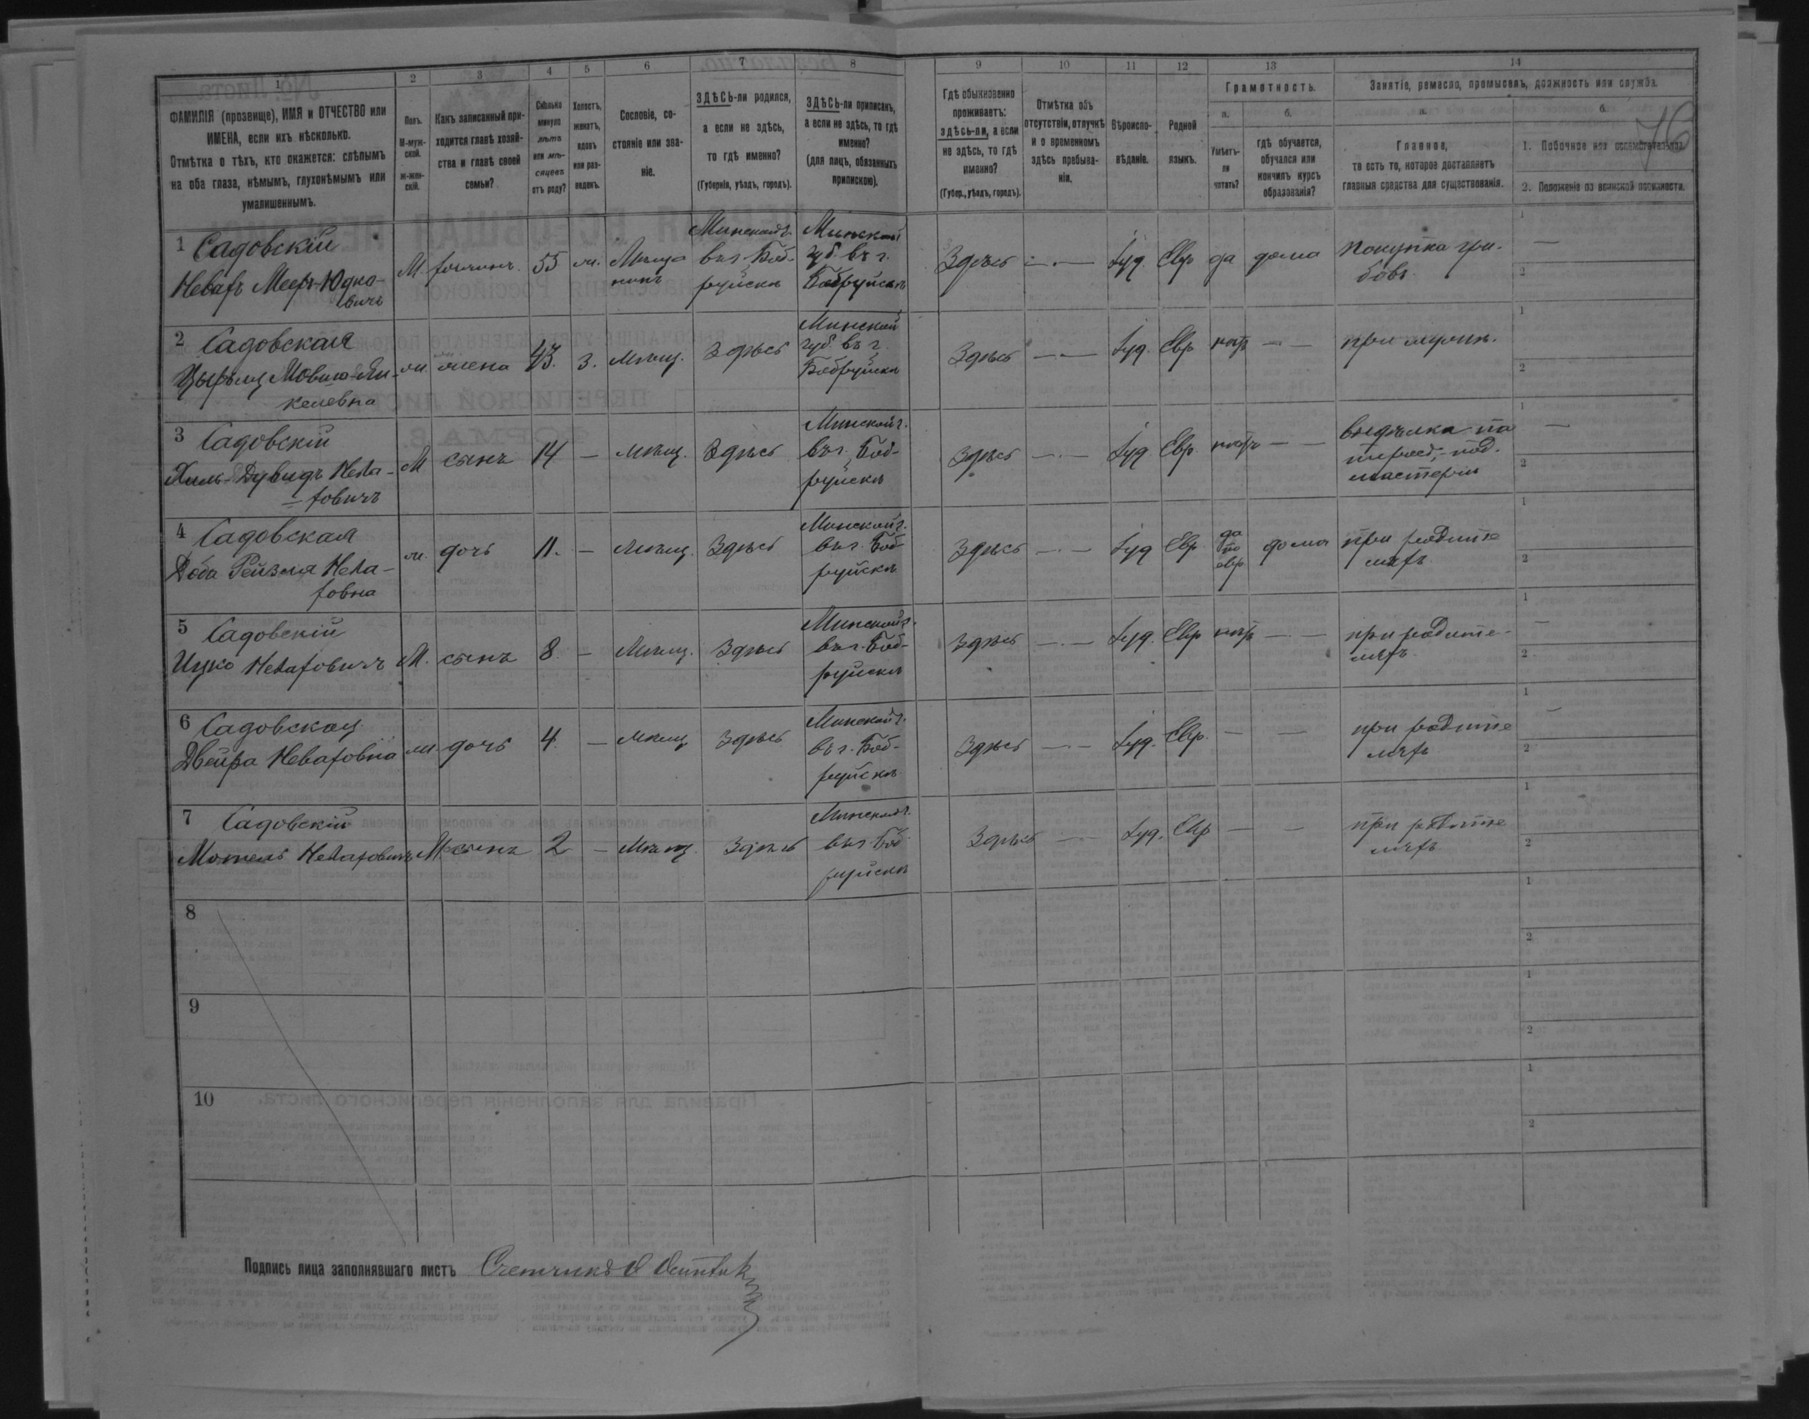 1
2
3
4
5
6
7
8
9
10
11
12
13
14
ФАМИЛІЯ (прозвище), ИМЯ и ОТЧЕСТВО или
ИМЕНА, если ихъ нѣсколько.
Отмѣтка о тѣхъ, кто окажется: слѣпымъ
на оба глаза, нѣмымъ, глухонѣмымъ или
умалишеннымъ.
Полъ.
М-муж-
ской.
ж-жен-
скій.
Какъ записанный при-
ходится главѣ хозяй-
ства и главѣ своей
семьи?
Сколько
минуло
лѣтъ
или мѣ-
сяцевъ
отъ роду?
Холостъ,
женатъ,
вдовъ
или раз-
веденъ.
Сословіе, со-
стояніе или зва-
ніе.
ЗДѢСЬ-ли родился,
а если не здѣсь,
то гдѣ именно?
(Губернія, уѣздъ, городъ).
ЗДѢСЬ-ли приписанъ,
а если не здѣсь, то гдѣ
именно?
(для лицъ, обязанныхъ
припискою).
Гдѣ обыкновенно
проживаетъ:
здѣсь-ли, а если
не здѣсь, то гдѣ
именно?
(Губер., уѣздъ, городъ).
Отмѣтка объ
отсутствіи, отлучкѣ
и о временномъ
здѣсь пребыва-
ніи.
Вѣроиспо-
вѣданіе.
Родной
языкъ.
Грамотность.
а.
Умѣетъ-
ли
читать?
б.
гдѣ обучается,
обучался или
кончилъ курсъ
образованія?
Занятіе, ремесло, промыселъ, должность или служба.
а.
Главное,
то есть то, которое доставляетъ
главныя средства для существованія.
б.
1. Побочное или вспомогательное.
2. Положеніе по воинской повинности.
76
1 Садовскій
Невахъ Мееръ-Юдко-
вичъ
М.
хозяинъ
55
ж.
Мѣща
нинъ
Минской г.
въ г. Боб-
руйскѣ
Минской
губ. въ г.
Бобруйскѣ
Здѣсь
Іуд.
Евр
да
дома
покупка гри-
бовъ
2 Садовская
Мовша-Ян-
келевна
ж.
жена
43.
з.
мѣщ.
Здѣсь
Минской
губ. въ г.
Бобруйскѣ
Здѣсь
Іуд.
Евр
нѣтъ
при мужѣ.
3 Садовскій
Хиль-Дувидъ Нева-
ховичъ
М
сынъ
14
мѣщ.
Здѣсь
Минской г.
въ г. Боб-
руйскѣ
Здѣсь
Іуд
Евр
нѣтъ
выдѣлка па
пиросъ, под.
мастерій
4 Садовская
Доба Рейзля Нева-
ховна
ж.
дочь
11.
Мѣщ.
Здѣсь
Минской г.
въ г. Боб
руйскѣ
Здѣсь
Іуд
Евр
да
по
евр
дома
при родите
ляхъ
5 Садовскій
Ицко Неваховичъ
М.
сынъ
8
Мѣщ.
Здѣсь
Минской г.
въ г. Боб-
руйскѣ
Здѣсь
Іуд.
Евр
нѣтъ
при родите-
ляхъ
6 Садовская
Двейра Неваховна
ж.
дочь
4
Мѣщ
Здѣсь
Минской г.
въ г. Боб-
руйскѣ
Здѣсь
Іуд.
Евр.
при родите
ляхъ
7 Садовскій
Мотель Неваховичъ
М
сынъ
2
Мѣщ
Здѣсь
Минской г.
въ г. Боб
руйскѣ
Здѣсь
Іуд.
Евр
при родите
ляхъ
8
9
10
Подпись лица заполнявшаго листъ Счетчикъ